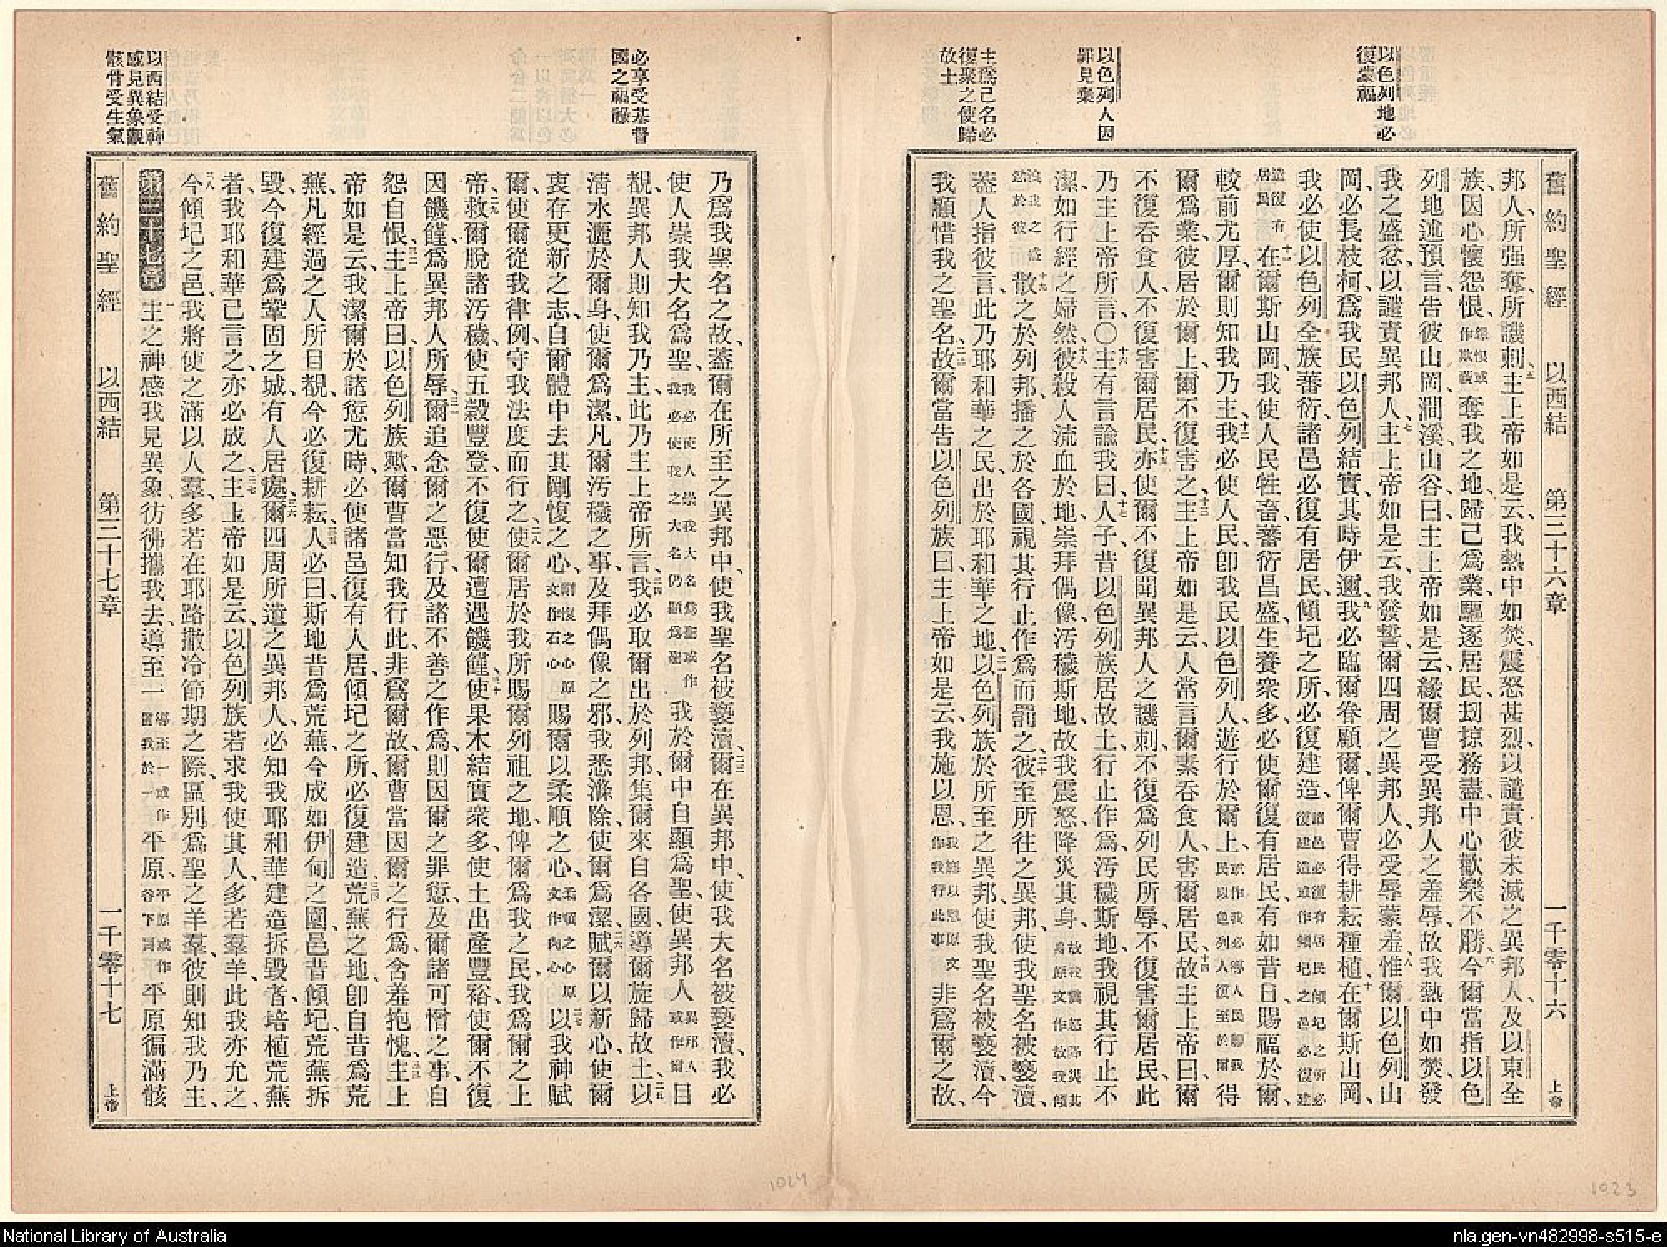 以色列地必
復蒙福
以色列人因
罪見棄
主爲己名必
復聚之使歸
故土
舊約聖經 以西結 第三十六章 一千零十六 上帝
邦人所强奪所譏刺五主上帝如是云我熱中如焚震怒甚烈以譴責彼未滅之異邦人及以東全
族因心懷怨恨奪我之地歸己爲業驅逐居民刦掠務盡中心歡樂不勝六今爾當指以色
列地述預言告彼山岡澗溪山谷曰主上帝如是云緣爾曹受異邦人之羞辱故我熱中如焚發
我之盛忿以譴責異邦人七主上帝如是云我發誓爾四周之異邦人必受辱蒙羞八惟爾以色列山
岡必長枝柯爲我民以色列結實其時伊邇九我必臨爾眷顧爾俾爾曹得耕耘種植十在爾斯山岡
我必使以色列全族蕃衍諸邑必復有居民傾圮之所必復建造諸邑必復有居民傾圮之所必復建造或作傾圮之邑必復建
造復有居民十一在爾斯山岡我使人民牲畜蕃衍昌盛生養衆多必使爾復有居民有如昔日賜福於爾
較前尤厚爾則知我乃主十二我必使人民卽我民以色列人遊行於爾上得
爾爲業彼居於爾上爾不復害之十三主上帝如是云人常言爾素吞食人害爾居民十四故主上帝曰爾
不復吞食人不復害爾居民十五亦使爾不復聞異邦人之譏刺不復爲列民所辱不復害爾居民此
乃主上帝所言〇十六主有言諭我曰十七人子昔以色列族居故土行止作爲汚穢斯地我視其行止不
潔如行經之婦然十八彼殺人流血於地崇拜偶像汚穢斯地故我震怒降災其身
十九散之於列邦播之於各國視其行止作爲而罰之二十彼至所往之異邦使我聖名被褻瀆
蓋人指彼言此乃耶和華之民出於耶和華之地二一以色列族於所至之異邦使我聖名被褻瀆今
我顧惜我之聖名二二故爾當告以色列族曰主上帝如是云我施以恩非爲爾之故
必享受基督
國之福祿
以西結受神
感見異象觀
骸骨受生氣
乃爲我聖名之故蓋爾在所至之異邦中使我聖名被褻瀆二三爾在異邦中使我大名被褻瀆我必
使人崇我大名爲聖我必使人崇我大名爲聖或作我必使我之大名仍顯爲聖我於爾中自顯爲聖使異邦人異邦人或作爾目
覩異邦人則知我乃主此乃主上帝所言二四我必取爾出於列邦集爾來自各國導爾旋歸故土二五以
淸水灑於爾身使爾爲潔凡爾汚穢之事及拜偶像之邪我悉滌除使爾爲潔二六賦爾以新心使爾
衷存更新之志自爾體中去其剛愎之心剛愎之心原文作石心賜爾以柔順之心柔順之心原文作肉心二七以我神賦
爾使爾從我律例守我法度而行之二八使爾居於我所賜爾列祖之地俾爾爲我之民我爲爾之上
帝二九救爾脫諸汚穢使五穀豐登不復使爾遭遇饑饉三十使果木結實衆多使土出產豐裕使爾不復
因饑饉爲異邦人所辱三一爾追念爾之惡行及諸不善之作爲則因爾之罪愆及爾諸可憎之事自
怨自恨三二主上帝曰以色列族歟爾曹當知我行此非爲爾故爾曹當因爾之行爲含羞抱愧三三主上
帝如是云我潔爾於諸愆尤時必使諸邑復有人居傾圮之所必復建造三四荒蕪之地卽自昔爲荒
蕪凡經過之人所目覩今必復耕耘三五人必曰斯地昔爲荒蕪今成如伊甸之園邑昔傾圮荒蕪拆
毀今復建爲鞏固之城有人居處三六爾四周所遺之異邦人必知我耶和華建造拆毀者培植荒蕪
者我耶和華已言之亦必成之三七主上帝如是云以色列族若求我使其人多若羣羊此我亦允之
三八今傾圮之邑我將使之滿以人羣多若在耶路撒冷節期之際區別爲聖之羊羣彼則知我乃主
第三十七章 一主之神感我見異象彷彿攜我去導至一平原平原或作谷下同平原徧滿骸
舊約聖經 以西結 第三十七章 一千零十七 上帝
1024
1023
National Library of Australia
nla.gen-vn482998-s515-e